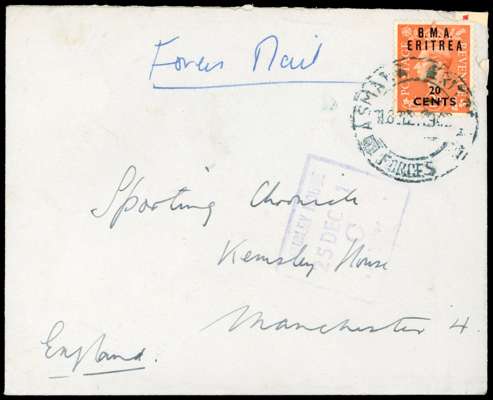 Forces Mail
B.M.A.
ERITREA
POSTAGE REVENUE
20
CENTS
ASMARA
FORCES
25 DEC
Sporting Chronicle
Kemsley House
Manchester 4.
England.